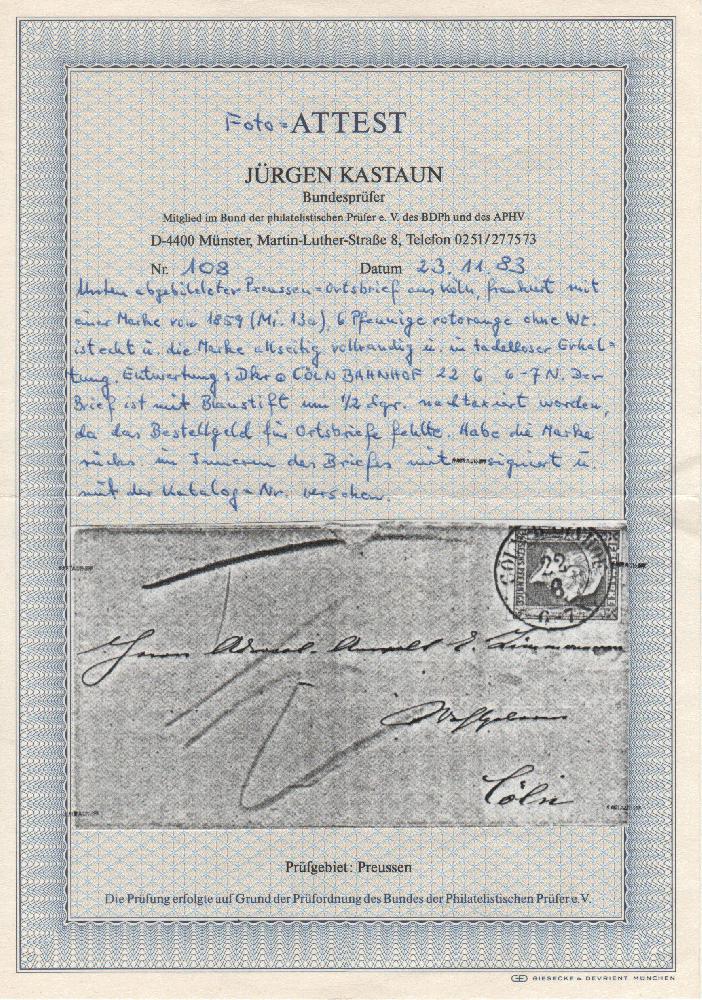 Foto-ATTEST
JÜRGEN KASTAUN
Bundesprüfer
Mitglied im Bund der philatelistischen Prüfer e. V. des BDPh und des APHV
D-4400 Münster, Martin-Luther-Straße 8, Telefon 0251/277573
Nr. 108 Datum 23.11.83
Unten abgebildeter Preussen-Ortsbrief aus Köln, frankiert mit
einer Marke von 1859 (Mi. 13a), 6 Pfennige rotorange ohne Wz.
ist echt u. die Marke allseitig vollrandig u. in tadelloser Erhal-
tung. Entwertung: Dkr CÖLN BAHNHOF 22 6 6-7 N. Der
Brief ist mit Blaustift um 1/2 Sgr. nachtaxiert worden,
da das Bestellgeld für Ortsbriefe fehlte. Habe die Marke
rücks. im Inneren des Briefes mit KASTAUN signiert u.
mit der Katalog-Nr. versehen.
CÖLN BAHNHOF
22
6-7
Herrn
Cöln
Prüfgebiet: Preussen
Die Prüfung erfolgte auf Grund der Prüfordnung des Bundes der Philatelistischen Prüfer e.V.
GIESECKE & DEVRIENT MÜNCHEN